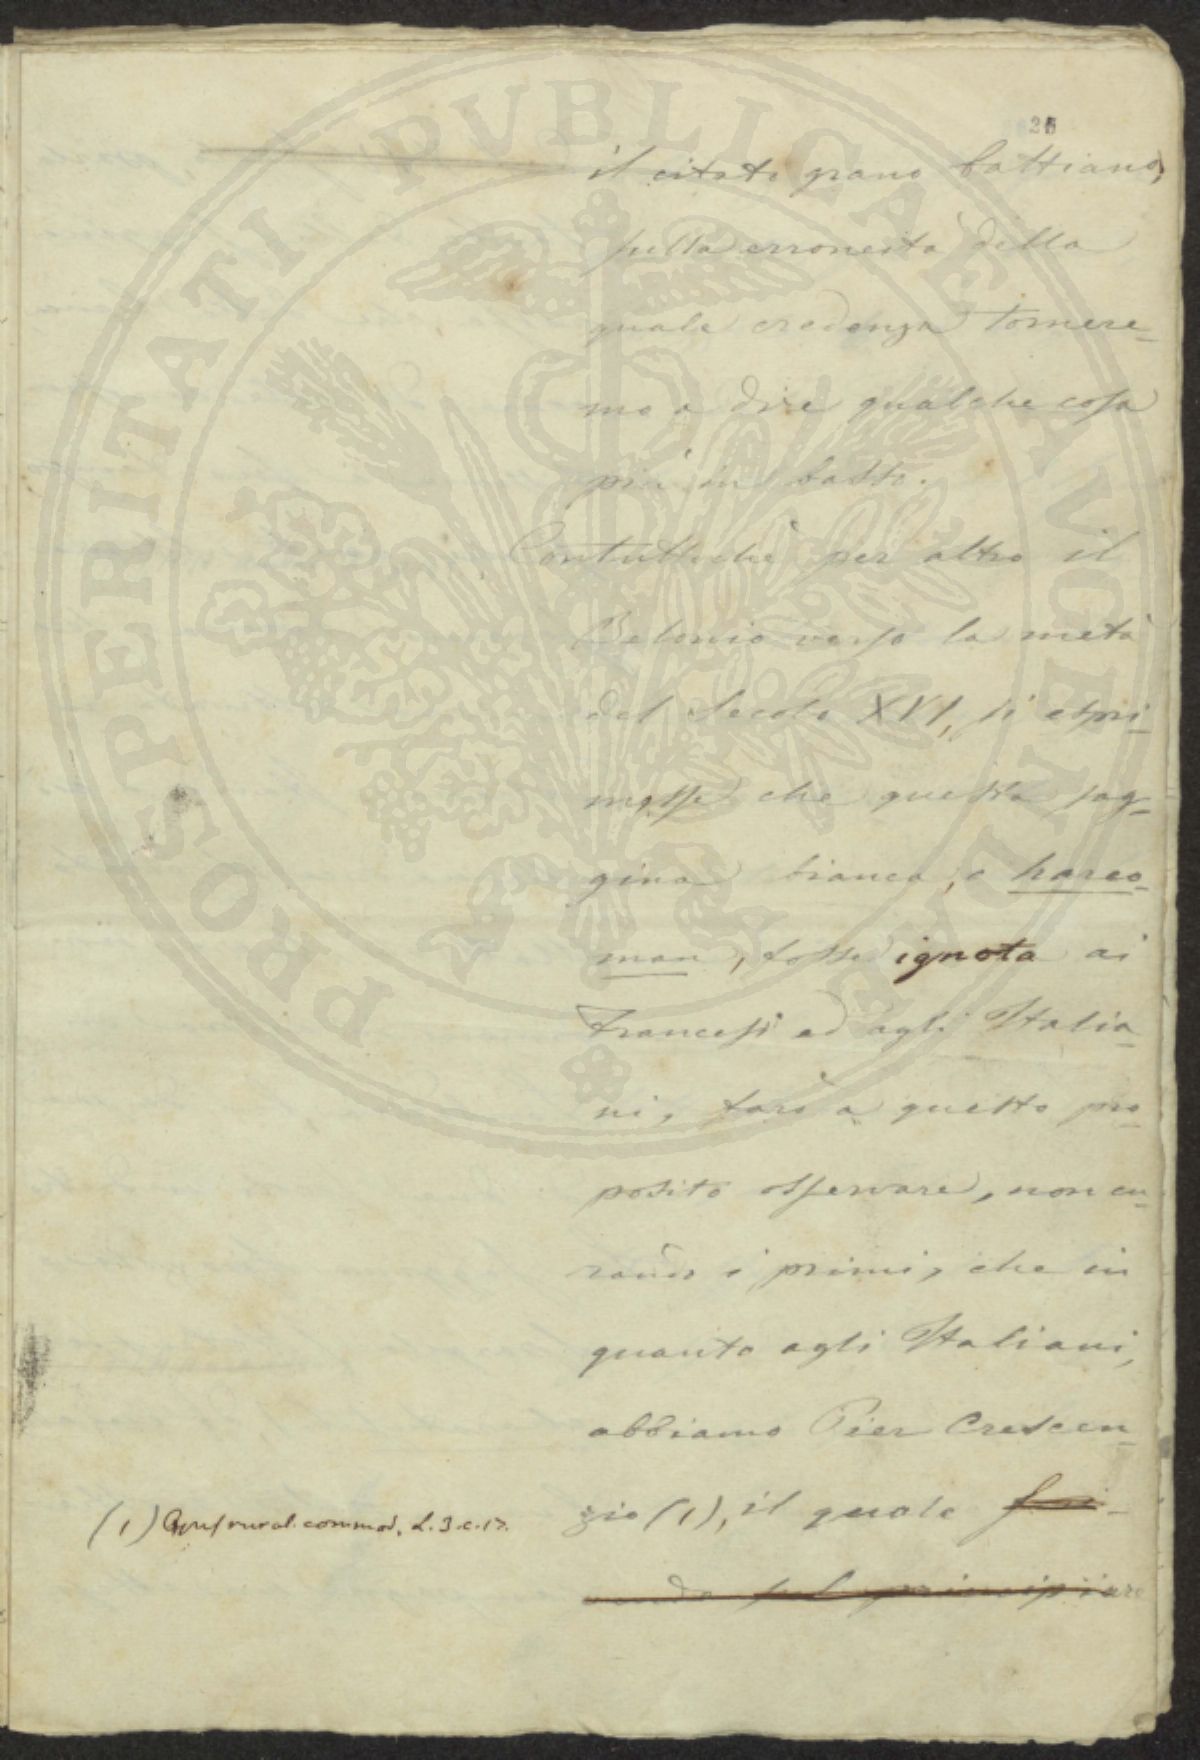 25
il citato grano battiano,
sulla erroneità della
quale credenza tornere-
mo a dire qualche cosa
più in basso.
Contuttochè per altro il
Belonio verso la metà
del Secolo XVI, si espri-
messe che questa sag-
gina bianca, o hareo-
man, fosse ignota ai
Francesi ed agli Italia-
ni, farò a questo pro-
posito osservare, non cu-
rando i primi, che in
quanto agli Italiani,
abbiamo Pier Crescen-
zio (1), il quale
(1) rural. commod. L. 3. c. 17.
sul principiare
PROSPERITATI PVBLICAE AVGENDAE